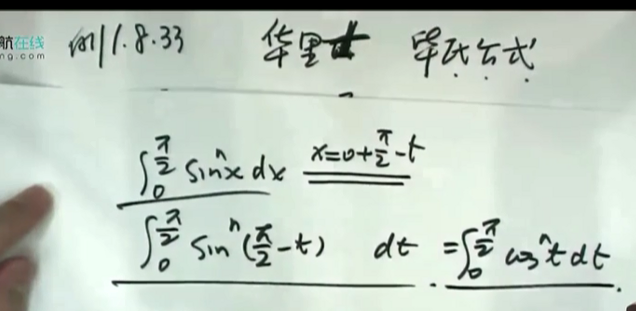 航在线
ng.com
例1.8.33 华里士 华氏公式
∫₀^{π/2} sinⁿx dx  x=0+π/2-t
∫₀^{π/2} sinⁿ(π/2-t) dt = ∫₀^{π/2} cosⁿt dt.